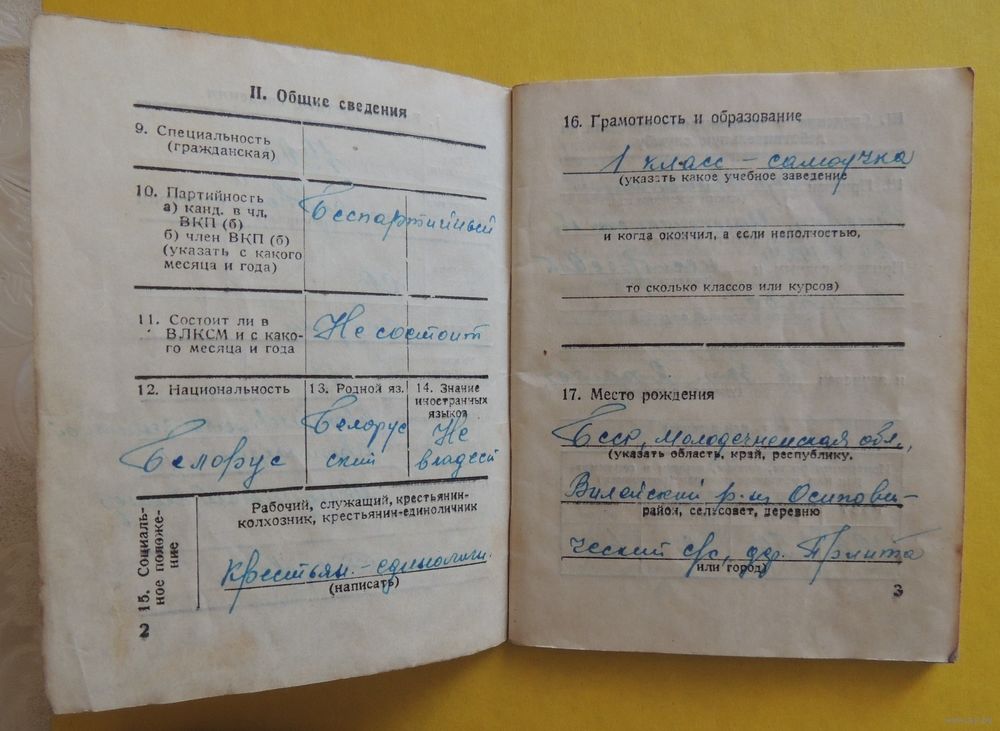 II. Общие сведения
9. Специальность
(гражданская)
10. Партийность
а) канд. в чл.
ВКП (б)
б) член ВКП (б)
(указать с какого
месяца и года)
Беспартийный
11. Состоит ли в
ВЛКСМ и с како-
го месяца и года
Не состоит
12. Национальность
Белорус
13. Родной яз.
Белорус
ский
14. Знание
иностранных
языков
Не
владеет
15. Социаль-
ное положе-
ние
Рабочий, служащий, крестьянин-
колхозник, крестьянин-единоличник
Крестьян. - единолич.
(написать)
2
16. Грамотность и образование
1 класс - самоучка
(указать какое учебное заведение
и когда окончил, а если неполностью,
то сколько классов или курсов)
17. Место рождения
БССР, Молодечненская обл.,
(указать область, край, республику,
Вилейский р-н, Осипови-
район, сельсовет, деревню
ческий с/с, др.
или город)
3